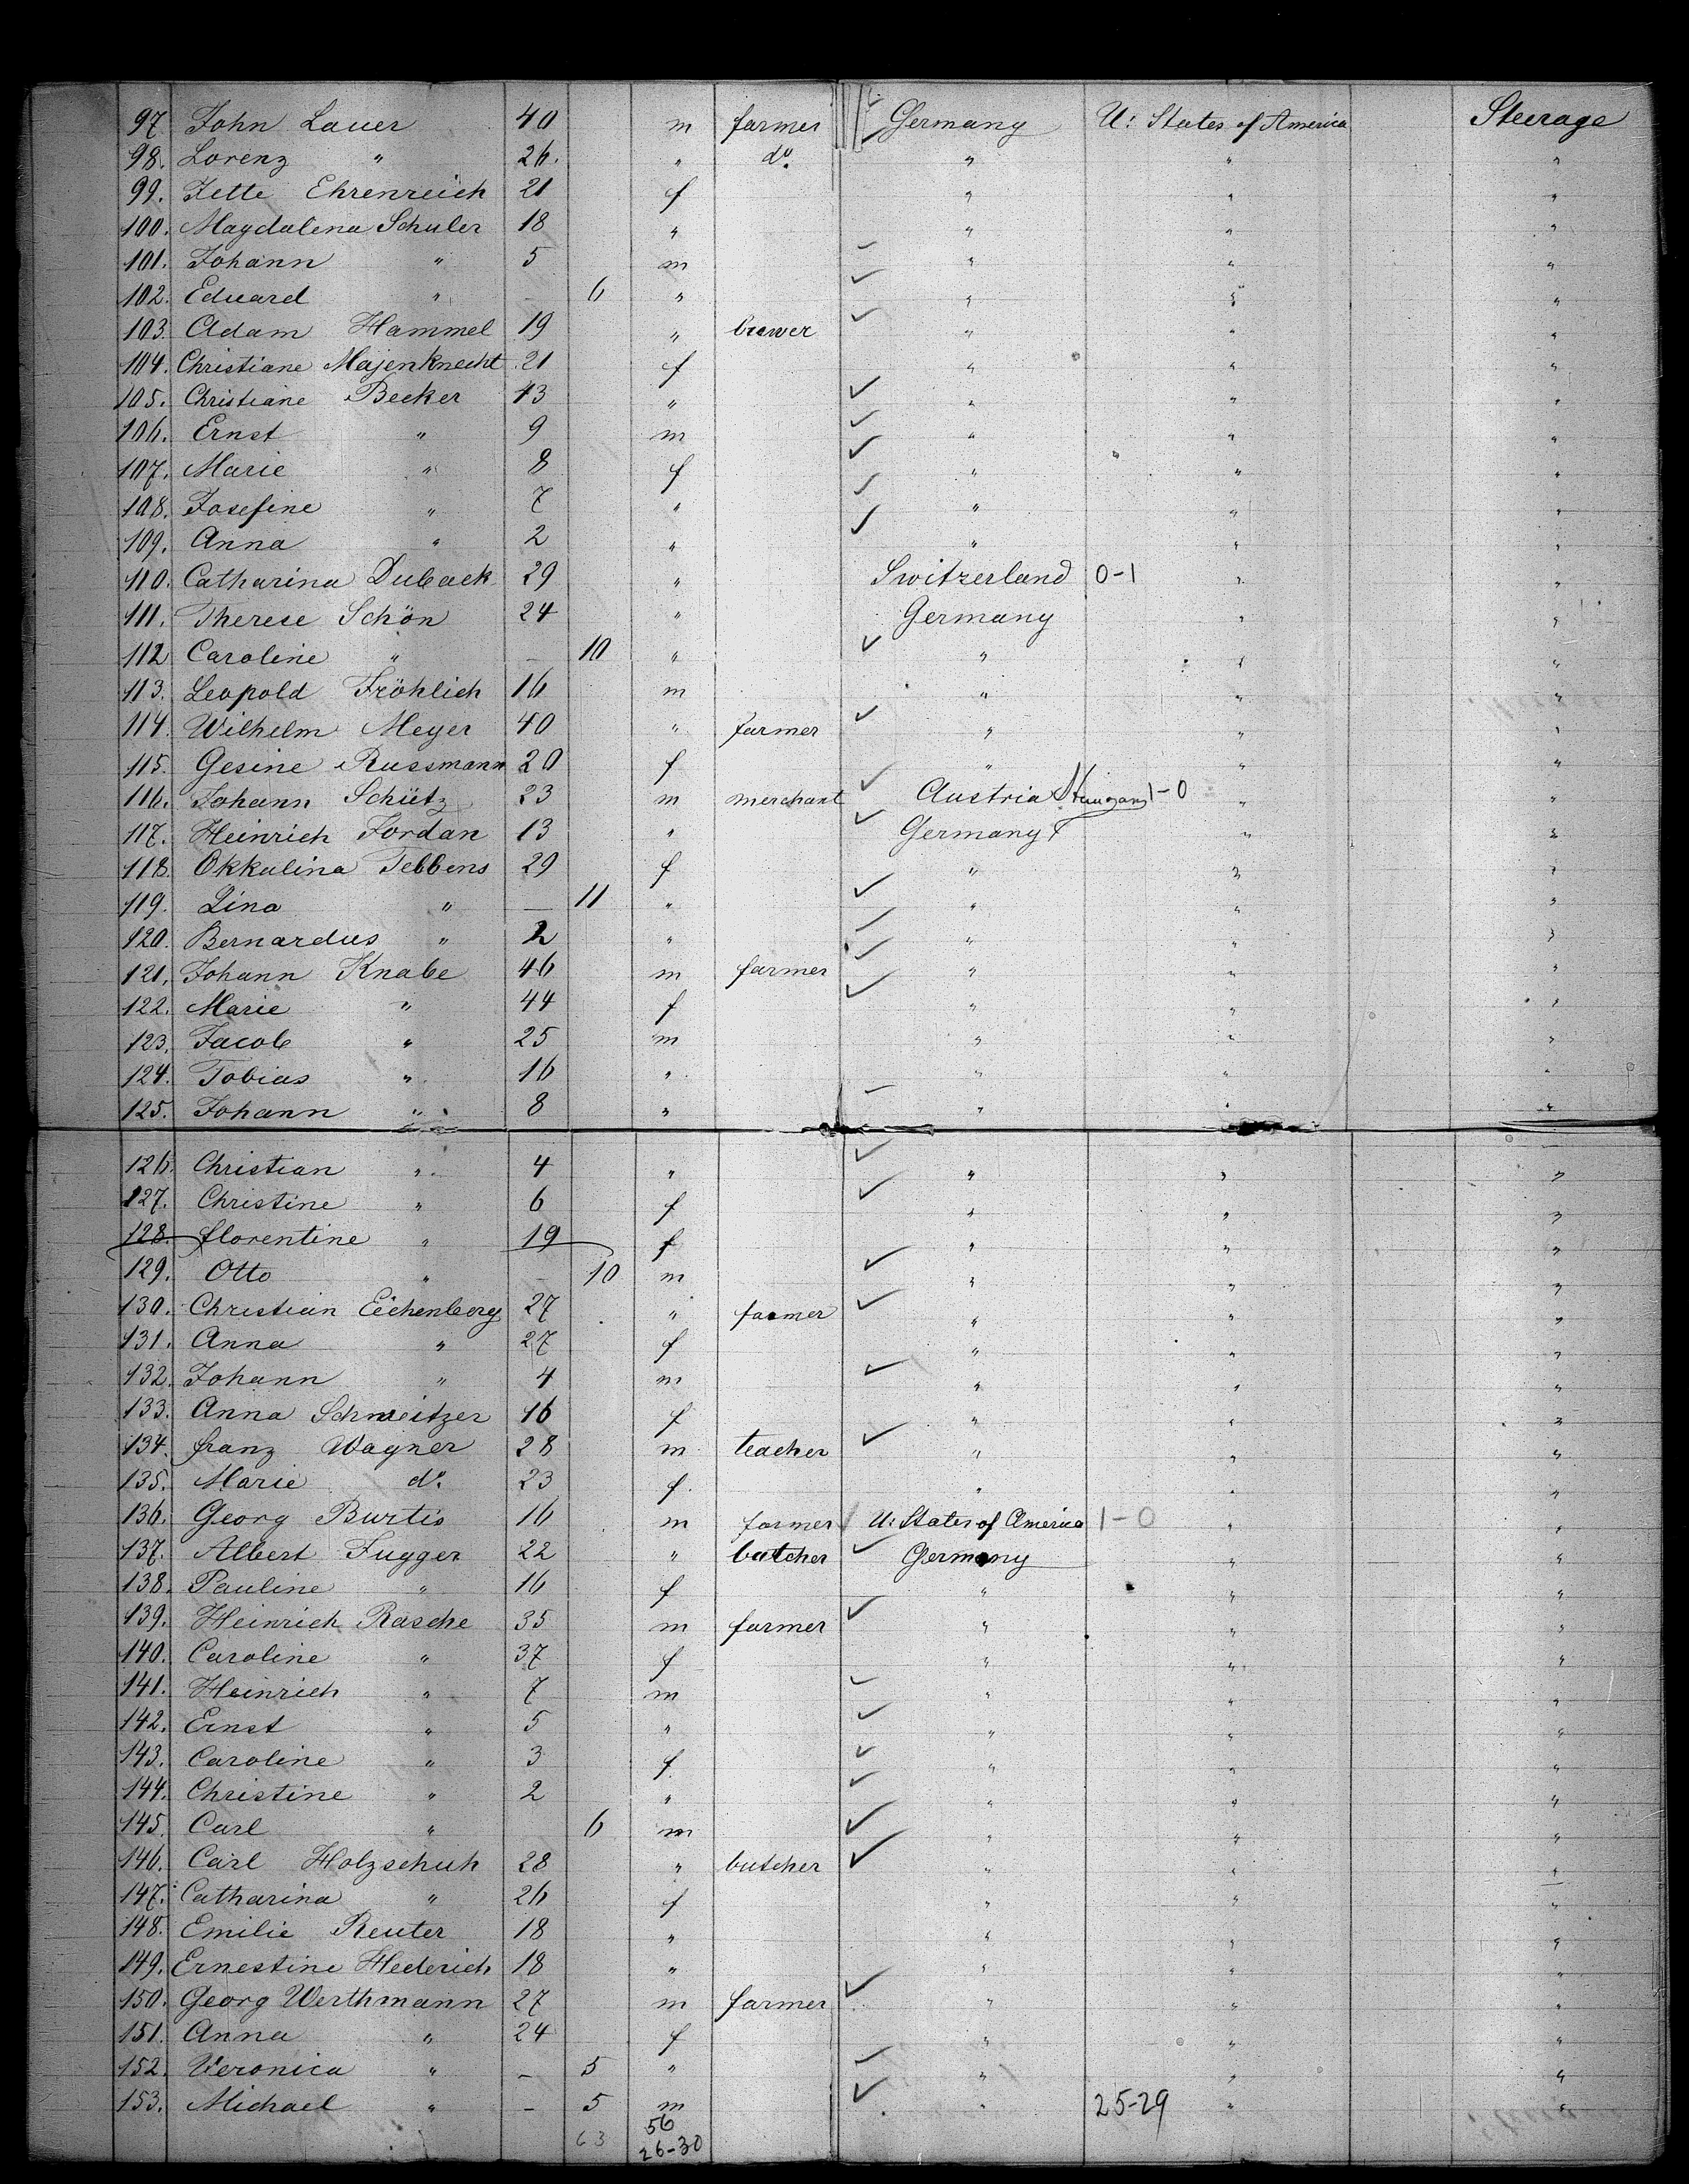 97 John Lauer 40 m farmer Germany U: States of America Steerage
98. Lorenz " 26. " do. " " "
99. Jette Ehrenreich 21 f " " "
100. Magdalena Schuler 18 " " " "
101. Johann " 5 m " " "
102. Eduard " - 6 " " " "
103. Adam Hammel 19 " brewer " " "
104. Christiane Majenknecht 21 f " " "
105. Christiane Becker 43 " " " "
106. Ernst " 9 m " " "
107. Marie " 8 f " " "
108. Josefine " 7 " " " "
109. Anna " 2 " " " "
110. Catharina Duback 29 " Switzerland 0-1 " "
111. Therese Schön 24 " Germany " "
112 Caroline " - 10 " " " "
113. Leopold Fröhlich 16 m " " "
114. Wilhelm Meyer 40 " farmer " " "
115. Gesine Russmann 20 f " " "
116. Johann Schütz 23 m merchant Austria Hungary 1-0 " "
117. Heinrich Jordan 13 " Germany " "
118. Okkulina Tebbens 29 f " " "
119. Lina " - 11 " " " "
120. Bernardus " 2 " " " "
121. Johann Knabe 46 m farmer " " "
122. Marie " 44 f " " "
123. Jacob " 25 m " " "
124. Tobias " 16 " " " "
125. Johann " 8 " " " "
126. Christian " 4 " " " "
127. Christine " 6 f " " "
128. florentine " 19 f " " "
129. Otto " - 10 m " " "
130. Christian Eichenberg 27 " farmer " " "
131. Anna " 27 f " " "
132. Johann " 4 m " " "
133. Anna Schweitzer 16 f " " "
134. franz Wagner 28 m teacher " " "
135. Marie do. 23 f. " " "
136. Georg Burtis 16 m farmer U: States of America 1-0 " "
137. Albert Fugger 22 " butcher Germany " "
138. Pauline " 16 f " " "
139. Heinrich Rasche 35 m farmer " " "
140. Caroline " 37 f " " "
141. Heinrich " 7 m " " "
142. Ernst " 5 " " " "
143. Caroline " 3 f. " " "
144. Christine " 2 " " " "
145. Carl " 6 m " " "
146. Carl Holzschuh 28 " butcher " " "
147. Catharina " 26 f " " "
148. Emilie Reuter 18 " " " "
149. Ernestine Hederich 18 " " " "
150. Georg Werthmann 27 m farmer " " "
151. Anna " 24 f " " "
152. Veronica " - 5 " " " "
153. Michael " - 5 m " 25-29 " "
56
63 26-30